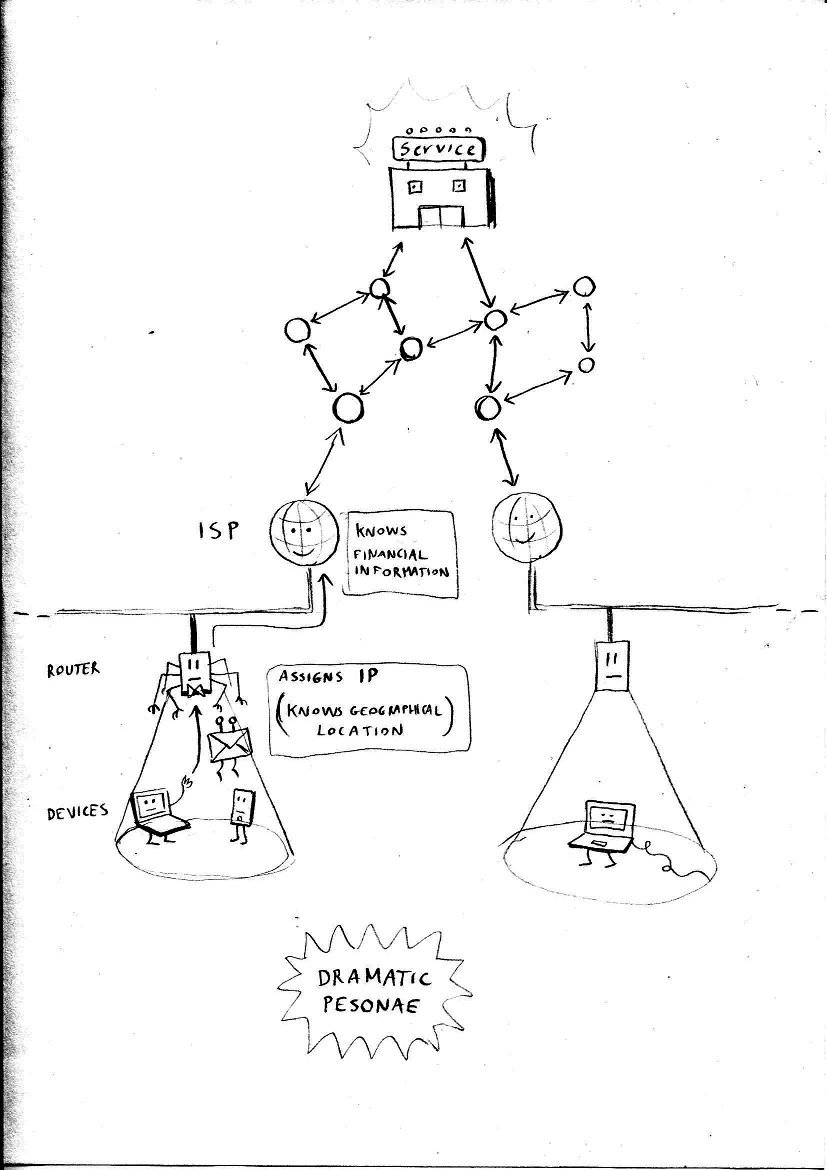 Service
ISP
KNOWS
FINANCIAL
INFORMATION
ROUTER
ASSIGNS IP
(KNOWS GEOGRAPHICAL
LOCATION)
DEVICES
DRAMATIC
PESONAE